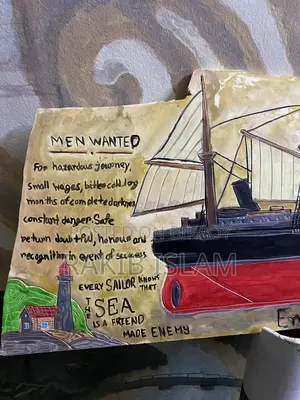 MEN WANTED
For hazardous journey,
small wages, bitter cold, long
months of complete darknes
constant danger. Safe
return doubtful, honour and
recognition in event of success
EVERY SAILOR KNOWS
THAT
THE SEA
IS A FRIEND
MADE ENEMY
En
RAKIB ISLAM